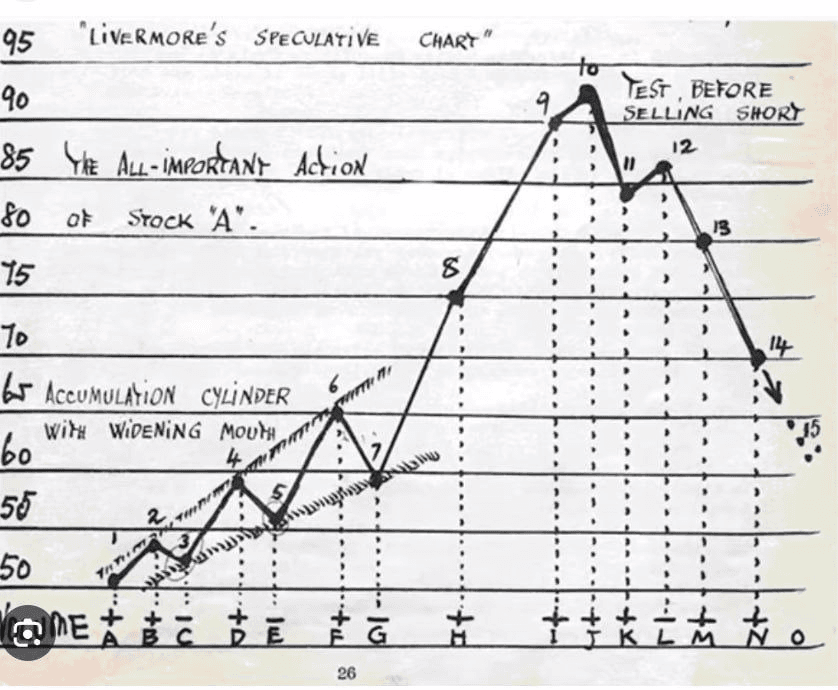 95 "LIVERMORE'S SPECULATIVE CHART"
10
90 9 TEST BEFORE
SELLING SHORT
85 THE ALL-IMPORTANT ACTION 11 12
80 OF STOCK "A". 13
75 8
70 14
65 ACCUMULATION CYLINDER 6
WITH WIDENING MOUTH 15
60 4 7
55 2 5
1 3
50
VOLUME + + - + - + - + + + + - + +
A B C D E F G H I J K L M N O
26